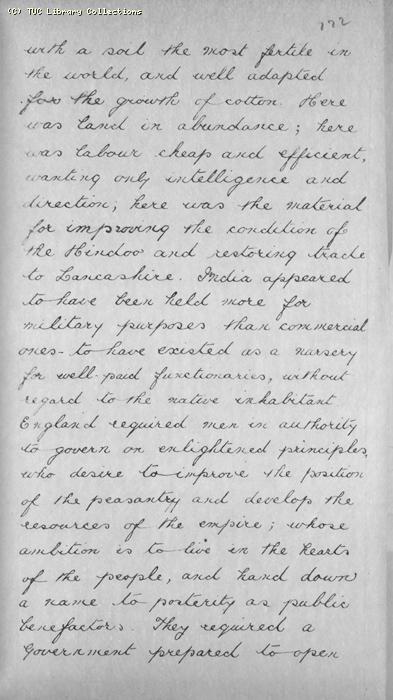 (C) TUC Library Collections
172
with a soil the most fertile in
the world, and well adapted
for the growth of cotton. Here
was land in abundance; here
was labour cheap and efficient,
wanting only intelligence and
direction; here was the material
for improving the condition of
the Hindoo and restoring trade
to Lancashire. India appeared
to have been held more for
military purposes than commercial
ones - to have existed as a nursery
for well-paid functionaries, without
regard to the native inhabitant
England required men in authority
to govern on enlightened principles,
who desire to improve the position
of the peasantry and develop the
resources of the empire; whose
ambition is to live in the hearts
of the people, and hand down
a name to posterity as public
benefactors. They required a
Government prepared to open